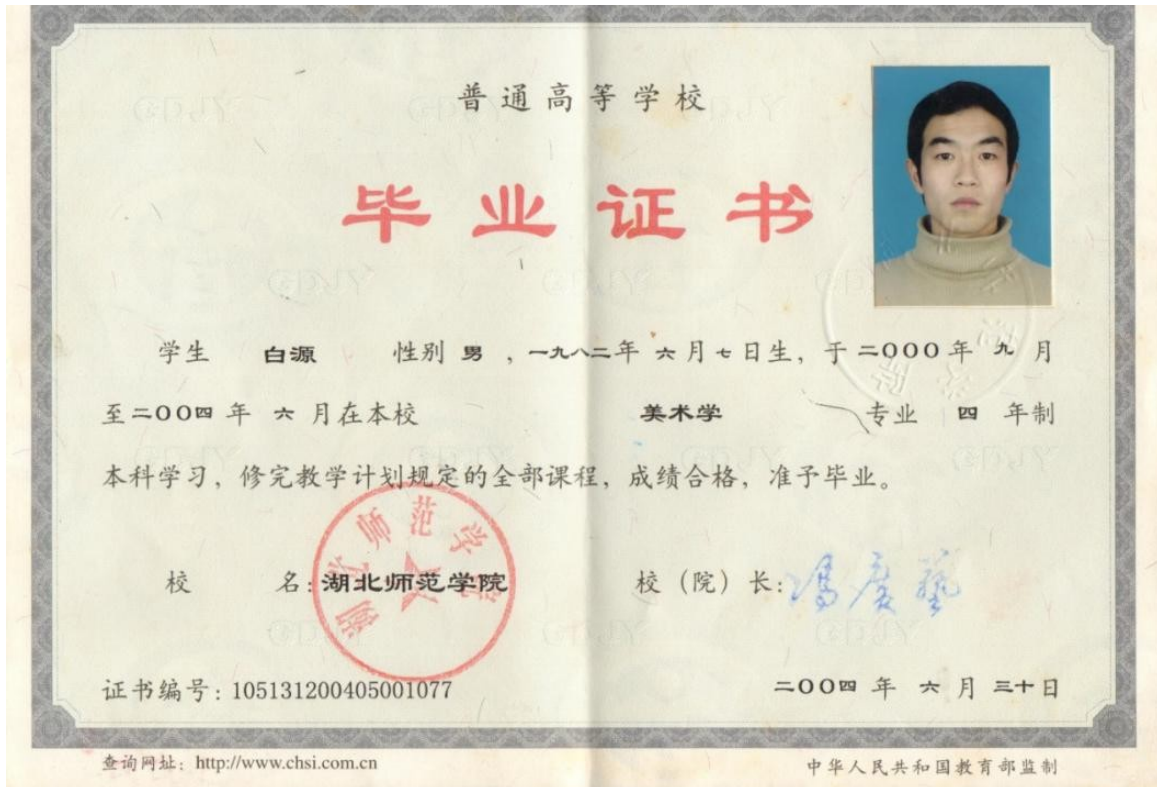 普通高等学校
毕业证书
学生 白源 性别 男 ，一九八二年 六 月 七 日生，于 二000 年 九 月
至二00四 年 六 月在本校 美术学 专业 四 年制
本科学习，修完教学计划规定的全部课程，成绩合格，准予毕业。
校 名：湖北师范学院 校（院）长：冯广艺
湖北师范学院
证书编号：105131200405001077 二00四 年 六 月 三十日
查询网址：http://www.chsi.com.cn 中华人民共和国教育部监制